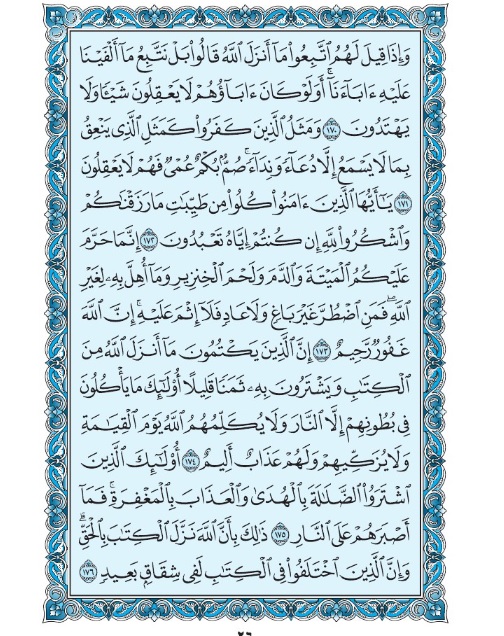 وَإِذَا قِيلَ لَهُمُ ٱتَّبِعُوا۟ مَآ أَنزَلَ ٱللَّهُ قَالُوا۟ بَلْ نَتَّبِعُ مَآ أَلْفَيْنَا
عَلَيْهِ ءَابَآءَنَآۗ أَوَلَوْ كَانَ ءَابَآؤُهُمْ لَا يَعْقِلُونَ شَيْـًٔا وَلَا
يَهْتَدُونَ ١٧٠ وَمَثَلُ ٱلَّذِينَ كَفَرُوا۟ كَمَثَلِ ٱلَّذِى يَنْعِقُ
بِمَا لَا يَسْمَعُ إِلَّا دُعَآءً وَنِدَآءًۚ صُمٌّۢ بُكْمٌ عُمْىٌ فَهُمْ لَا يَعْقِلُونَ
١٧١ يَـٰٓأَيُّهَا ٱلَّذِينَ ءَامَنُوا۟ كُلُوا۟ مِن طَيِّبَـٰتِ مَا رَزَقْنَـٰكُمْ
وَٱشْكُرُوا۟ لِلَّهِ إِن كُنتُمْ إِيَّاهُ تَعْبُدُونَ ١٧٢ إِنَّمَا حَرَّمَ
عَلَيْكُمُ ٱلْمَيْتَةَ وَٱلدَّمَ وَلَحْمَ ٱلْخِنزِيرِ وَمَآ أُهِلَّ بِهِۦ لِغَيْرِ
ٱللَّهِۖ فَمَنِ ٱضْطُرَّ غَيْرَ بَاغٍ وَلَا عَادٍ فَلَآ إِثْمَ عَلَيْهِۚ إِنَّ ٱللَّهَ
غَفُورٌ رَّحِيمٌ ١٧٣ إِنَّ ٱلَّذِينَ يَكْتُمُونَ مَآ أَنزَلَ ٱللَّهُ مِنَ
ٱلْكِتَـٰبِ وَيَشْتَرُونَ بِهِۦ ثَمَنًا قَلِيلًا أُو۟لَـٰٓئِكَ مَا يَأْكُلُونَ
فِى بُطُونِهِمْ إِلَّا ٱلنَّارَ وَلَا يُكَلِّمُهُمُ ٱللَّهُ يَوْمَ ٱلْقِيَـٰمَةِ
وَلَا يُزَكِّيهِمْ وَلَهُمْ عَذَابٌ أَلِيمٌ ١٧٤ أُو۟لَـٰٓئِكَ ٱلَّذِينَ
ٱشْتَرَوُا۟ ٱلضَّلَـٰلَةَ بِٱلْهُدَىٰ وَٱلْعَذَابَ بِٱلْمَغْفِرَةِۚ فَمَآ
أَصْبَرَهُمْ عَلَى ٱلنَّارِ ١٧٥ ذَٰلِكَ بِأَنَّ ٱللَّهَ نَزَّلَ ٱلْكِتَـٰبَ بِٱلْحَقِّۗ
وَإِنَّ ٱلَّذِينَ ٱخْتَلَفُوا۟ فِى ٱلْكِتَـٰبِ لَفِى شِقَاقٍۭ بَعِيدٍ ١٧٦
٢٦